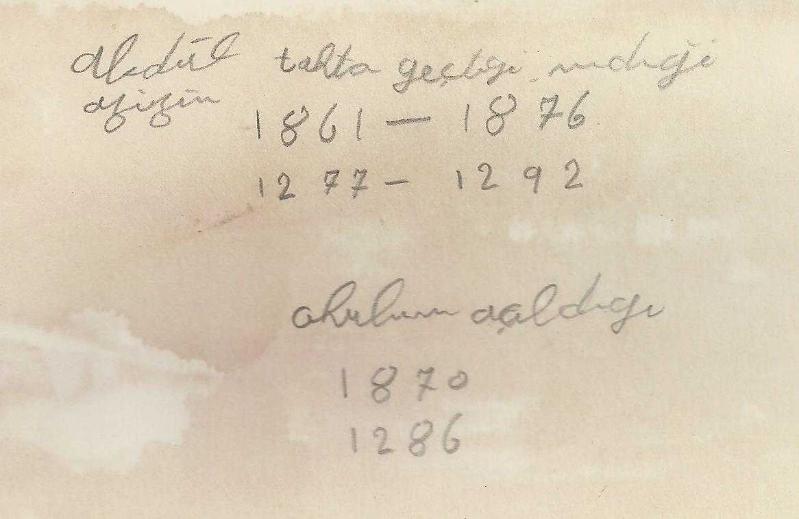 Abdül tahta geçtiği indiği
azizin
1861 — 1876
1277 — 1292
okulun açıldığı
1870
1286